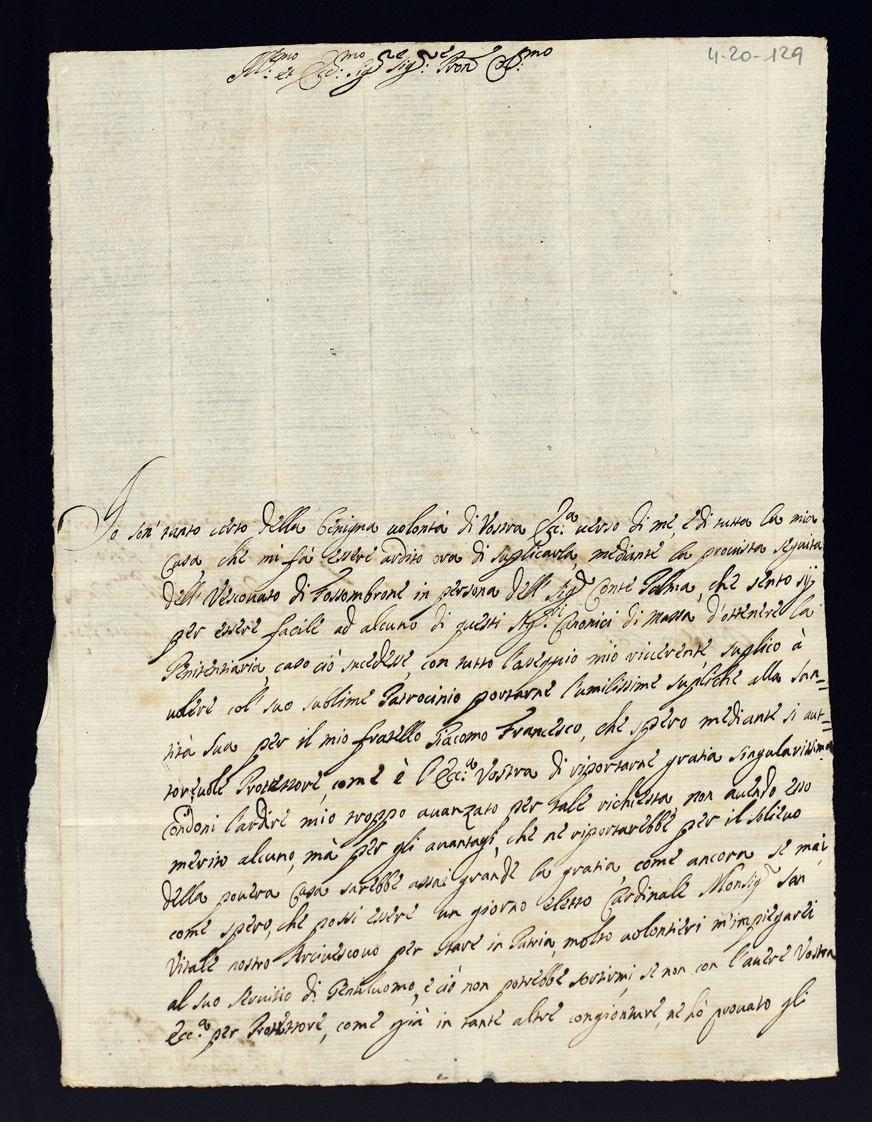 4-20-129
Ill.mo et Ecc.mo Sig.re Sig.re Pron Col.mo
Io son' tanto certo della benigna uolontà di Vostra Ecc.a uerso di me, e di tutta la mia
Casa che mi fà essere ardito ora di suplicarla, mediante la prouista seguita
dell Vescouato di Fossombrone in persona dell Sig.r Conte Palma, che sento sij
per essere facile ad alcuno di questi Sig.ri Canonici di Massa d'ottenere la
Penitentiaria, caso ciò sucedesse, con tutto l'assequio mio riuerente suplico à
uolere col' suo sublime Patrocinio portarne l'umilissime supliche alla San=
tità Sua per il mio fratello Giacomo Francesco, che spero mediante si aut=
toreuole Protettore, come è l'Ecc.a Vostra di riportarne gratia singularissima
Condoni l'ardire mio troppo auanzato per tale richiesta, non auendo esso
merito alcuno, mà per gli auantagi, che ne riportarebbe per il solieuo
della pouera Casa sarebbe assai grande la gratia, come ancora se mai,
come spero, che possi essere un giorno eletto Cardinale Monsig.r San
Vitale nostro Arciuescouo per stare in Patria, molto uolontieri m'impiegarei
al suo seruitio di Gentiluomo, e ciò non potrebbe sortirmi, se non con l'auere Vostra
Ecc.a per Protettore, come già in tante altre congionture, ne hò prouato gli